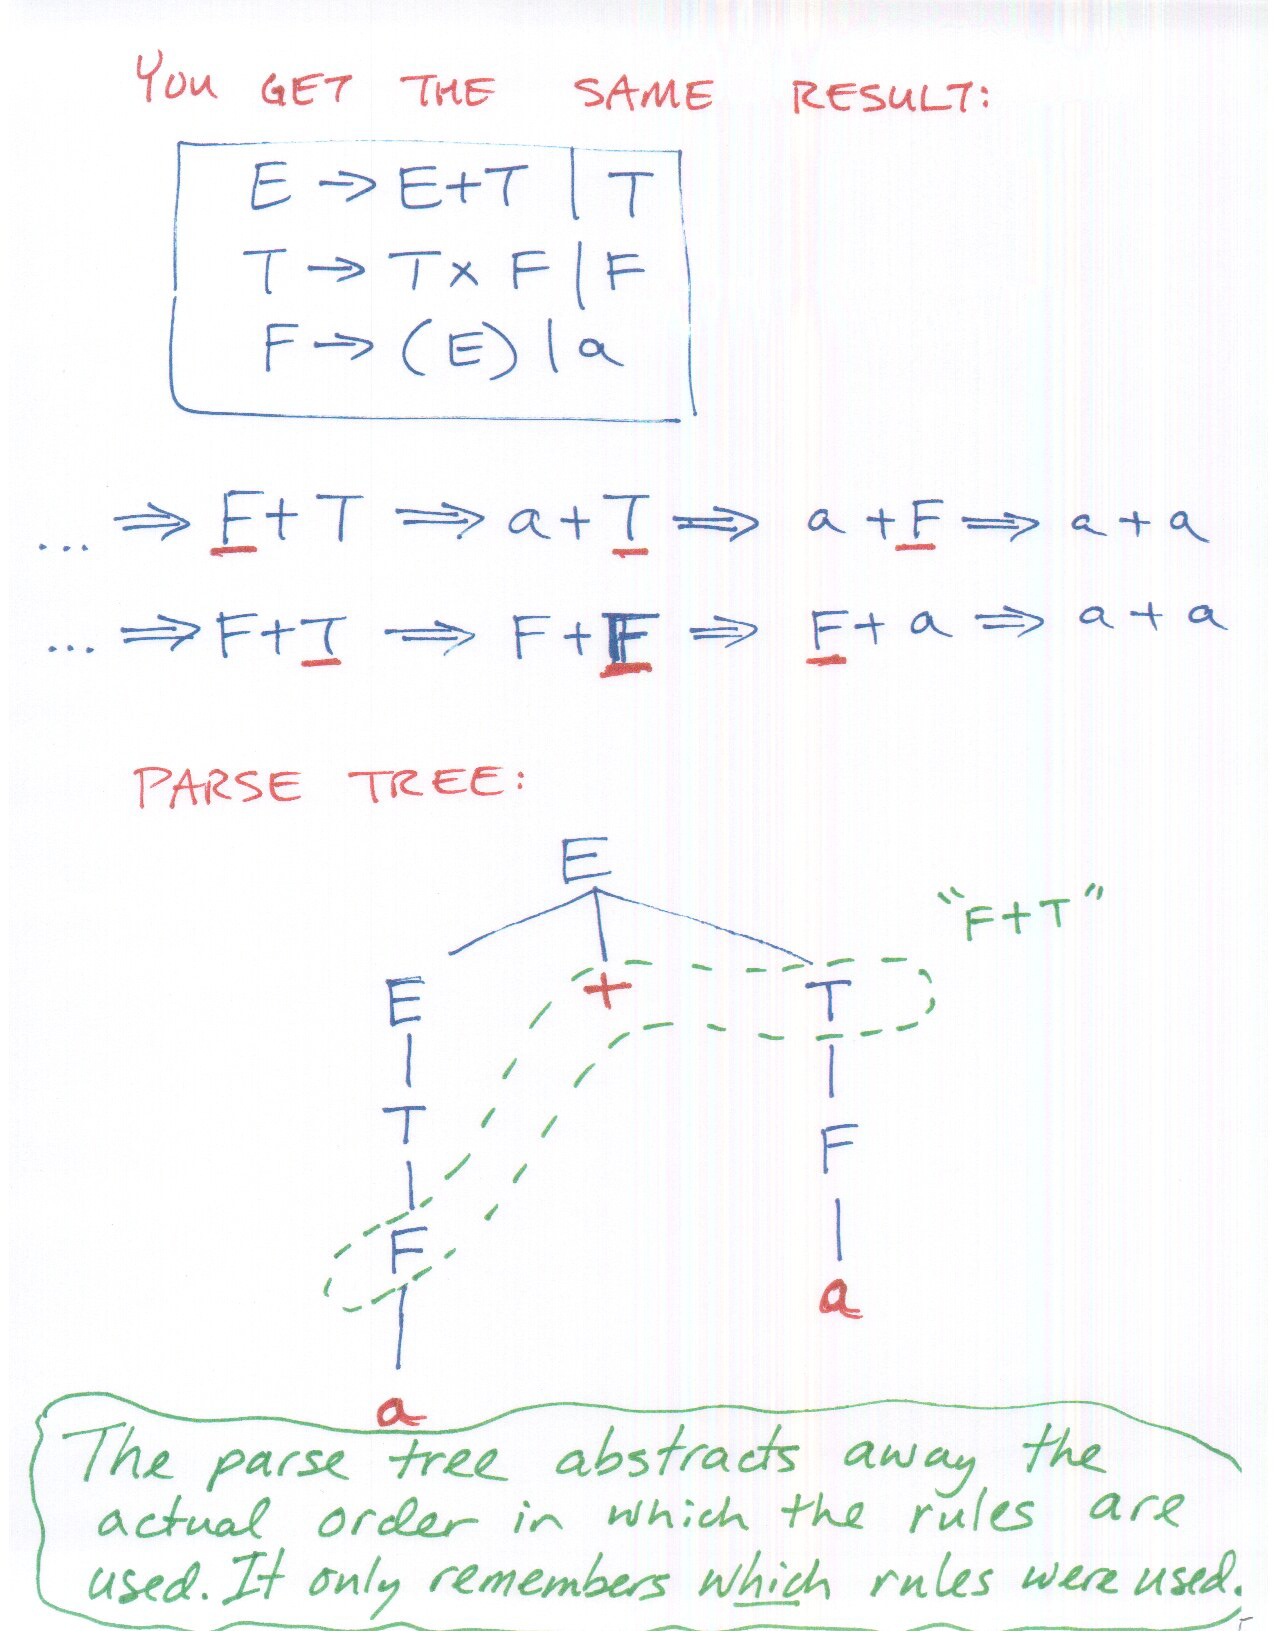 YOU GET THE SAME RESULT:
E → E+T | T
T → T x F | F
F → (E) | a
... ⇒ F+T ⇒ a+T ⇒ a+F ⇒ a+a
... ⇒ F+T ⇒ F+F ⇒ F+a ⇒ a+a
PARSE TREE:
E
"F+T"
E + T
T F
F a
a
The parse tree abstracts away the
actual order in which the rules are
used. It only remembers which rules were used.